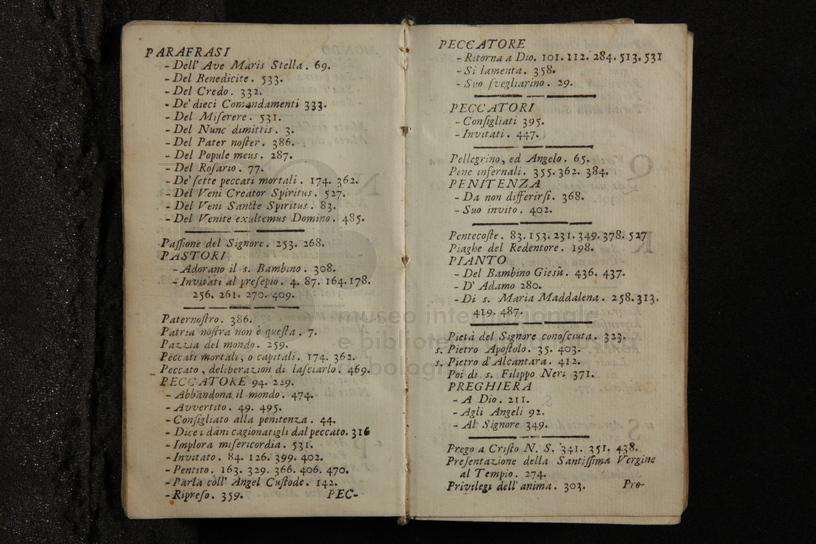 PARAFRASI
- Dell' Ave Maris Stella. 69.
- Del Benedicite. 533.
- Del Credo. 332.
- De' dieci Comandamenti 333.
- Del Miserere. 531.
- Del Nunc dimittis. 3.
- Del Pater noſter. 386.
- Del Popule meus. 287.
- Del Roſario. 77.
- De' ſette peccati mortali. 174. 362.
- Del Veni Creator Spiritus. 527.
- Del Veni Sancte Spiritus. 83.
- Del Venite exultemus Domino. 485.
Paſſione del Signore. 253. 268.
PASTORI
- Adorano il s. Bambino. 308.
- Invitati al preſepio. 4. 87. 164. 178.
256. 261. 270. 409.
Paternoſtro. 386.
Patria noſtra non è queſta. 7.
Pazzia del mondo. 259.
Peccati mortali, o capitali. 174. 362.
Peccato, deliberazion di laſciarlo. 469.
PECCATORE 94. 229.
- Abbandona il mondo. 474.
- Avvertito. 49. 495.
- Conſigliato alla penitenza. 44.
- Dice i dani cagionatigli dal peccato. 316
- Implora miſericordia. 531.
- Invitato. 84. 126. 399. 402.
- Pentito. 163. 329. 366. 406. 470.
- Parla coll' Angel Cuſtode. 142.
- Ripreſo. 359.
PEC-
PECCATORE
- Ritorna a Dio. 101. 112. 284. 513. 531
- Si lamenta. 358.
- Suo ſvegliarino. 29.
PECCATORI
- Conſigliati 395.
- Invitati. 447.
Pellegrino, ed Angelo. 65.
Pene infernali. 355. 362. 384.
PENITENZA
- Da non differirſi. 368.
- Suo invito. 402.
Pentecoſte. 83. 153. 231. 349. 378. 527
Piaghe del Redentore. 198.
PIANTO
- Del Bambino Giesù. 436. 437.
- D' Adamo 280.
- Di s. Maria Maddalena. 258. 313.
419. 487.
Pietà del Signore conoſciuta. 323.
s. Pietro Apoſtolo. 35. 403.
s. Pietro d'Alcantara. 412.
Poi di s. Filippo Neri 371.
PREGHIERA
- A Dio. 211.
- Agli Angeli 92.
- Al Signore 349.
Prego a Criſto N. S. 341. 351. 438.
Preſentazione della Santiſſima Vergine
al Tempio. 274.
Privilegi dell' anima. 303.
Pro-
museo internazionale
e biblioteca
bologna